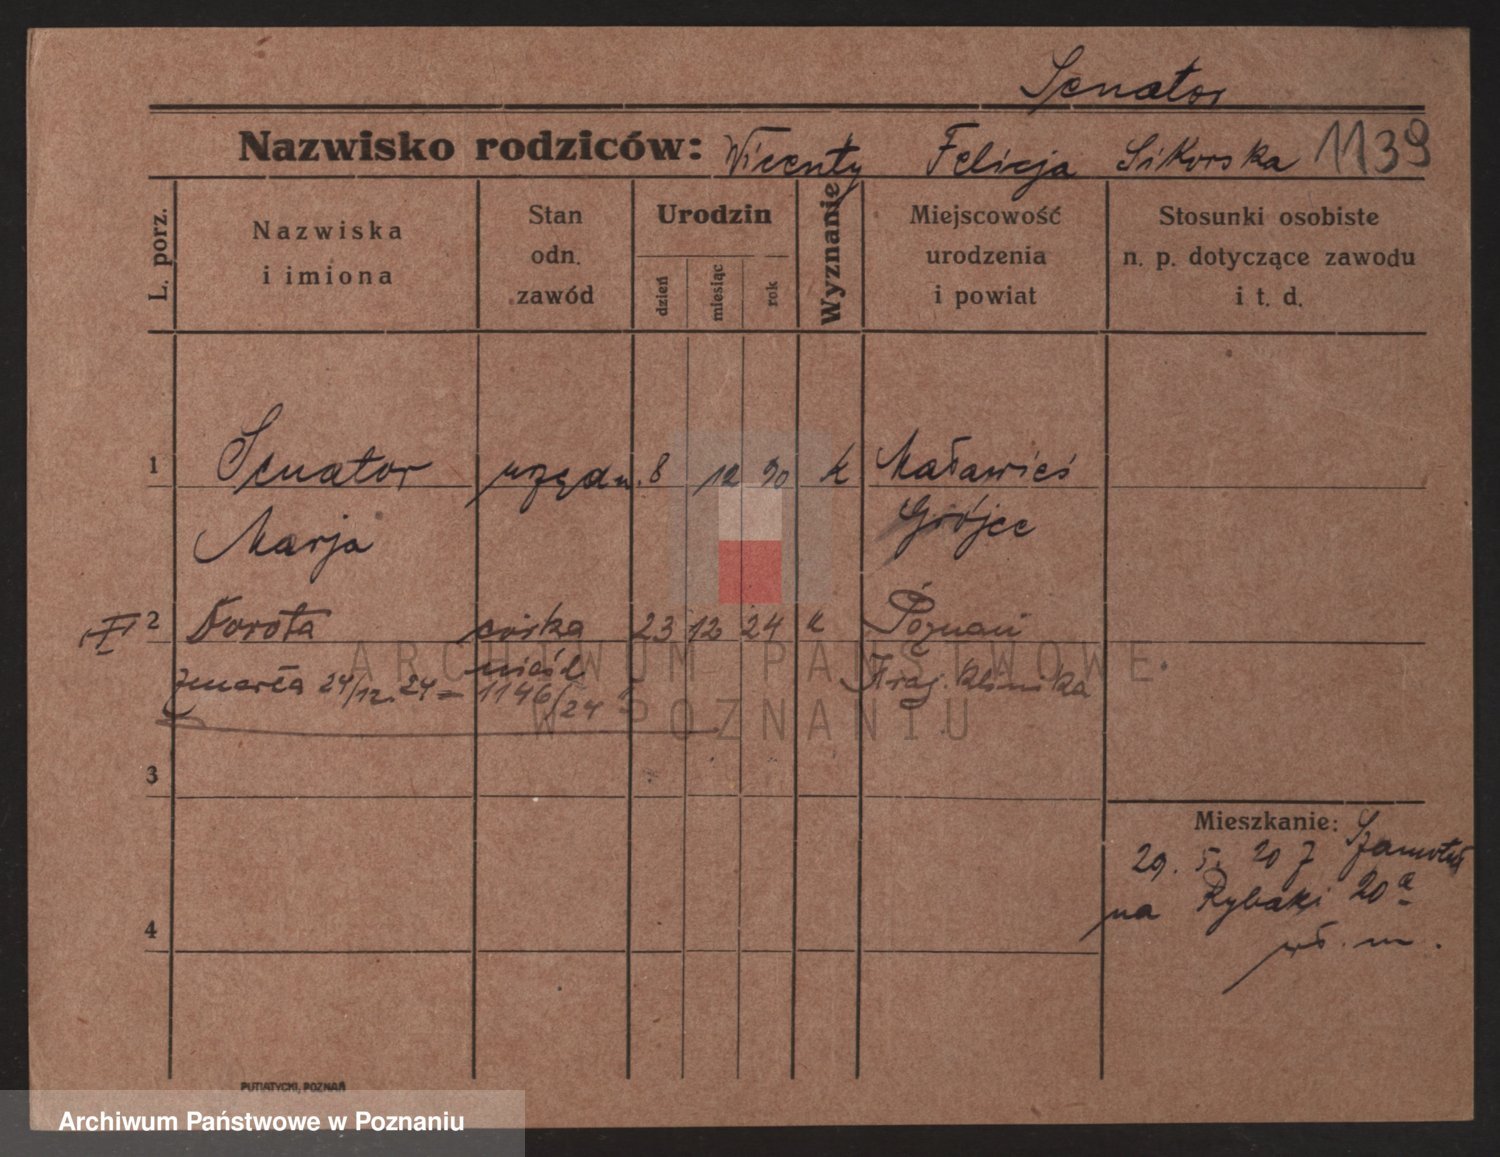 Senator
Nazwisko rodziców: Wicenty Felicja Sikorska 1139
L. porz.
Nazwiska
i imiona
Stan
odn.
zawód
Urodzin
dzień
miesiąc
rok
Wyznanie
Miejscowość
urodzenia
i powiat
Stosunki osobiste
n. p. dotyczące zawodu
i t. d.
1 Senator urzędn. 8 12 90 k Maławieś
Marja Grójec
2 Dorota córka 23 12 24 k Poznań
nieśl
zmarła 24/12.24 = 1146/24 Kraj. klinika
3
4
Mieszkanie:
29. 5. 20 z Szamotuł
na Rybaki 20a
wł. m.
PUTIATYCKI, POZNAŃ
ARCHIWUM PAŃSTWOWE
W POZNANIU
Archiwum Państwowe w Poznaniu